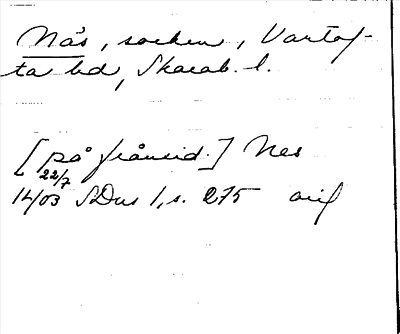 Näs, socken, Vartof-
ta hd, Skarab. l.
[på frånsid.] Nes
22/7
14/03 SDns 1, s. 275 orig